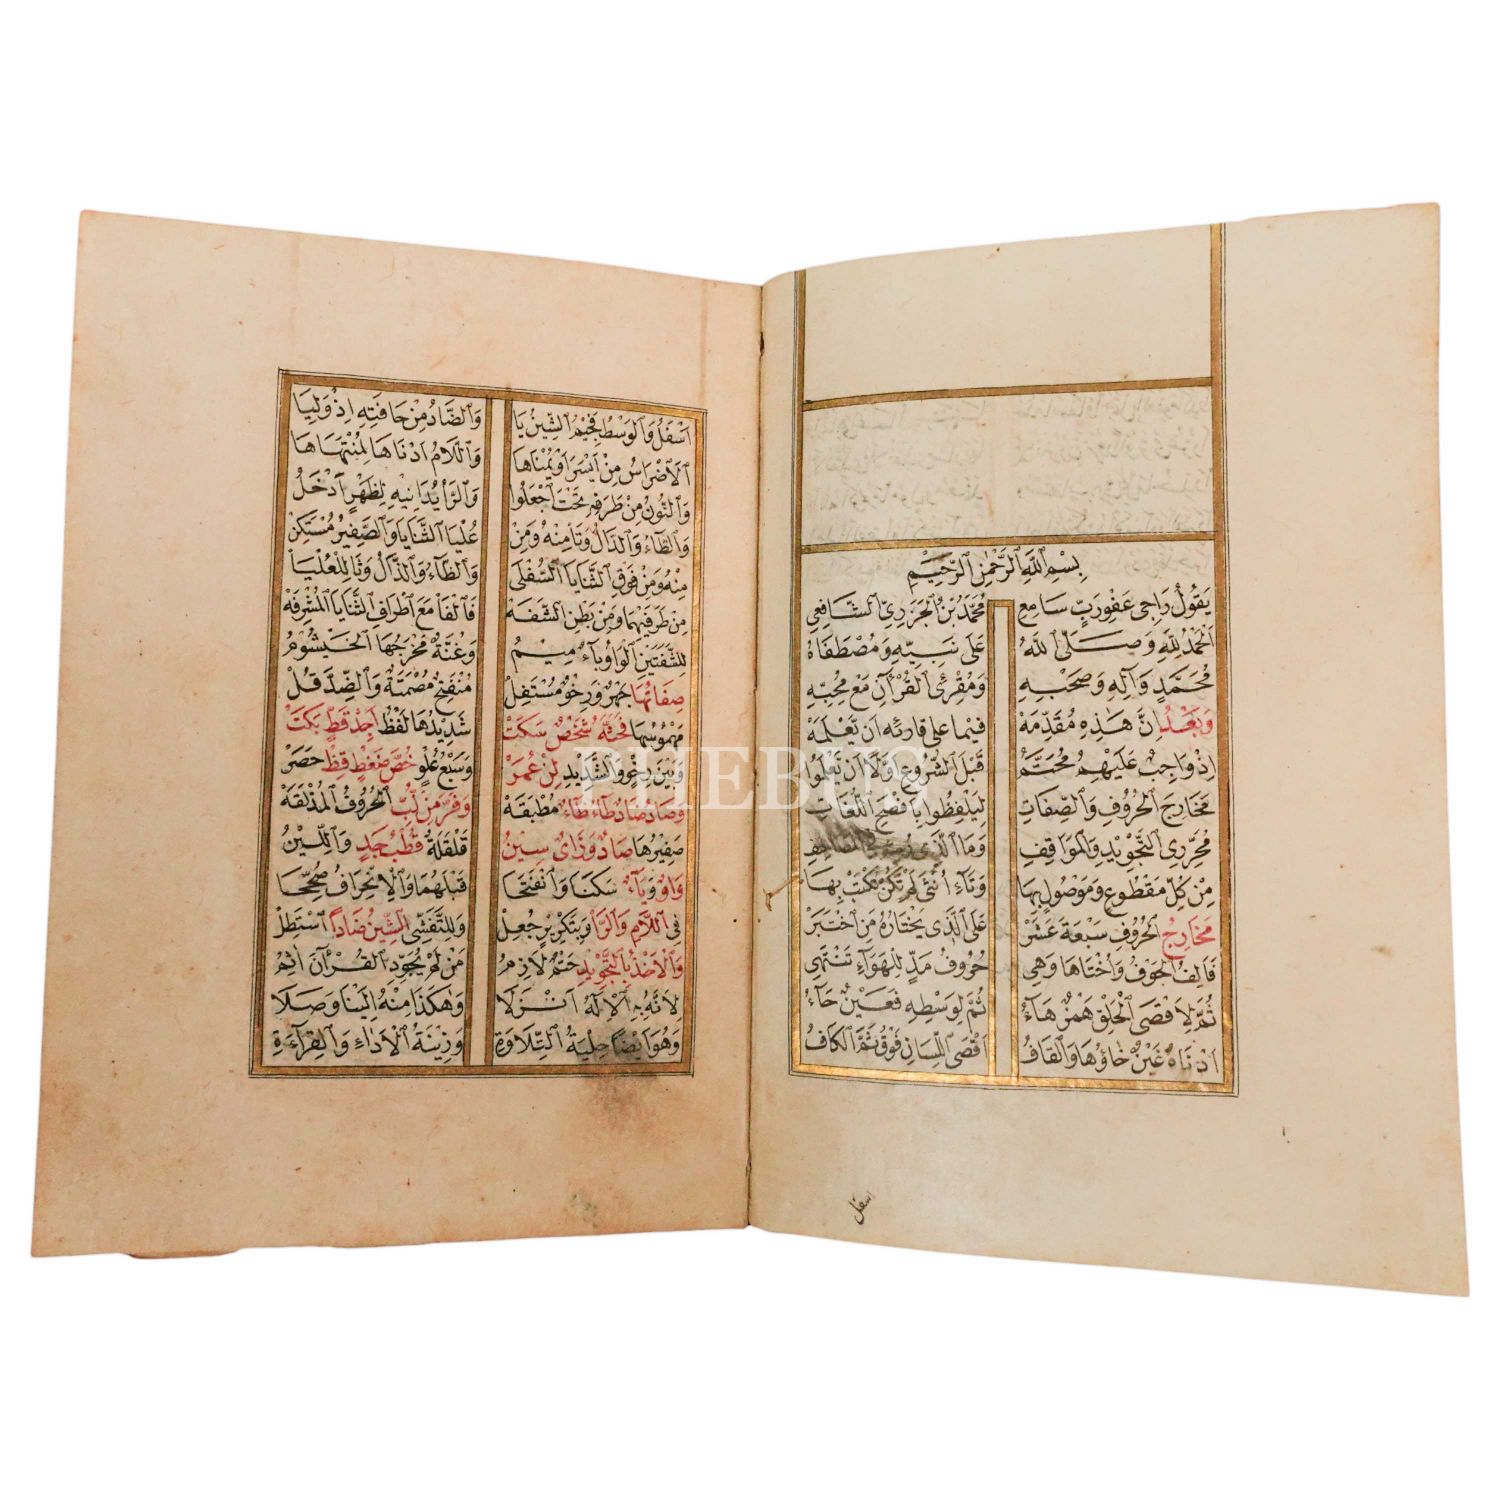 بِسْمِ اللَّهِ الرَّحْمٰنِ الرَّحِيمِ
يَقُولُ رَاجِى عَفْوِرَبٍّ سَامِعٍ مُحَمَّدُ بْنُ الْجَزَرِىِّ الشَّافِعِى
اَلْحَمْدُ لِلّٰهِ وَصَلَّى اللّٰهُ عَلَى نَبِيِّهِ وَمُصْطَفَاهُ
مُحَمَّدٍ وَآلِهِ وَصَحْبِهِ وَمُقْرِئِ الْقُرْآنِ مَعْ مُحِبِّهِ
وَبَعْدُ اِنَّ هٰذِهِ مُقَدِّمَهْ فِيمَا عَلَى قَارِئِهِ اَنْ يَعْلَمَهْ
اِذْ وَاجِبٌ عَلَيْهِمُ مُحَتَّمُ قَبْلَ الشُّرُوعِ اَوَّلًا اَنْ يَعْلَمُوا
مَخَارِجَ الْحُرُوفِ وَالصِّفَاتِ لِيَلْفِظُوا بِاَفْصَحِ اللُّغَاتِ
مُحَرِّرِى التَّجْوِيدِ وَالْمَوَاقِفِ وَمَا الَّذِى رُسِمَ فِى الْمَصَاحِفِ
مِنْ كُلِّ مَقْطُوعٍ وَمَوْصُولٍ بِهَا وَتَاءِ اُنْثَى لَمْ تَكُنْ تُكْتَبْ بِهَا
مَخَارِجُ الْحُرُوفِ سَبْعَةَ عَشَرْ عَلَى الَّذِى يَخْتَارُهُ مَنِ اخْتَبَرْ
فَاَلِفُ الْجَوْفِ وَاُخْتَاهَا وَهِى حُرُوفُ مَدٍّ لِلْهَوَاءِ تَنْتَهِى
ثُمَّ لِاَقْصَى الْحَلْقِ هَمْزٌ هَاءُ ثُمَّ لِوَسْطِهِ فَعَيْنٌ حَاءُ
اَدْنَاهُ غَيْنٌ خَاؤُهَا وَالْقَافُ اَقْصَى اللِّسَانِ فَوْقُ ثُمَّ الْكَافُ
اسفل
اَسْفَلُ وَالْوَسْطُ فَجِيمُ الشِّينُ يَا وَالضَّادُ مِنْ حَافَتِهِ اِذْ وَلِيَا
اَلْاَضْرَاسَ مِنْ اَيْسَرَ اَوْ يُمْنَاهَا وَاللَّامُ اَدْنَاهَا لِمُنْتَهَاهَا
وَالنُّونُ مِنْ طَرَفِهِ تَحْتَ اجْعَلُوا وَالرَّا يُدَانِيهِ لِظَهْرٍ اَدْخَلُ
وَالطَّاءُ وَالدَّالُ وَتَا مِنْهُ وَمِنْ عُلْيَا الثَّنَايَا وَالصَّفِيرُ مُسْتَكِنْ
مِنْهُ وَمِنْ فَوْقِ الثَّنَايَا السُّفْلَى وَالظَّاءُ وَالذَّالُ وَثَا لِلْعُلْيَا
مِنْ طَرَفَيْهِمَا وَمِنْ بَطْنِ الشَّفَهْ فَالْفَا مَعَ اَطْرَافِ الثَّنَايَا الْمُشْرِفَهْ
لِلشَّفَتَيْنِ الْوَاوُ بَاءٌ مِيمُ وَغُنَّةٌ مَخْرَجُهَا الْخَيْشُومُ
صِفَاتُهَا جَهْرٌ وَرِخْوٌ مُسْتَفِلْ مُنْفَتِحٌ مُصْمَتَةٌ وَالضِّدَّ قُلْ
مَهْمُوسُهَا فَحَثَّهُ شَخْصٌ سَكَتْ شَدِيدُهَا لَفْظُ اَجِدْ قَطٍ بَكَتْ
وَبَيْنَ رِخْوٍ وَالشَّدِيدِ لِنْ عُمَرْ وَسَبْعُ عُلْوٍ خُصَّ ضَغْطٍ قِظْ حَصَرْ
وَصَادُ ضَادٌ طَاءُ ظَاءٌ مُطْبَقَهْ وَفَرَّ مِنْ لُبِّ الْحُرُوفُ الْمُذْلَقَهْ
صَفِيرُهَا صَادٌ وَزَاىٌ سِينُ قَلْقَلَةٌ قُطْبُ جَدٍ وَاللِّينُ
وَاوٌ وَيَاءٌ سَكَنَا وَانْفَتَحَا قَبْلَهُمَا وَالْاِنْحِرَافُ صُحِّحَا
فِى اللَّامِ وَالرَّا وَبِتَكْرِيرٍ جُعِلْ وَلِلتَّفَشِّى الشِّينُ ضَادًا اسْتُطِلْ
وَالْاَخْذُ بِالتَّجْوِيدِ حَتْمٌ لَازِمُ مَنْ لَمْ يُجَوِّدِ الْقُرْآنَ آثِمُ
لِاَنَّهُ بِهِ الْاِلٰهُ اَنْزَلَا وَهٰكَذَا مِنْهُ اِلَيْنَا وَصَلَا
وَهُوَ اَيْضًا حِلْيَةُ التِّلَاوَةِ وَزِينَةُ الْاَدَاءِ وَالْقِرَاءَةِ
PHEBUS